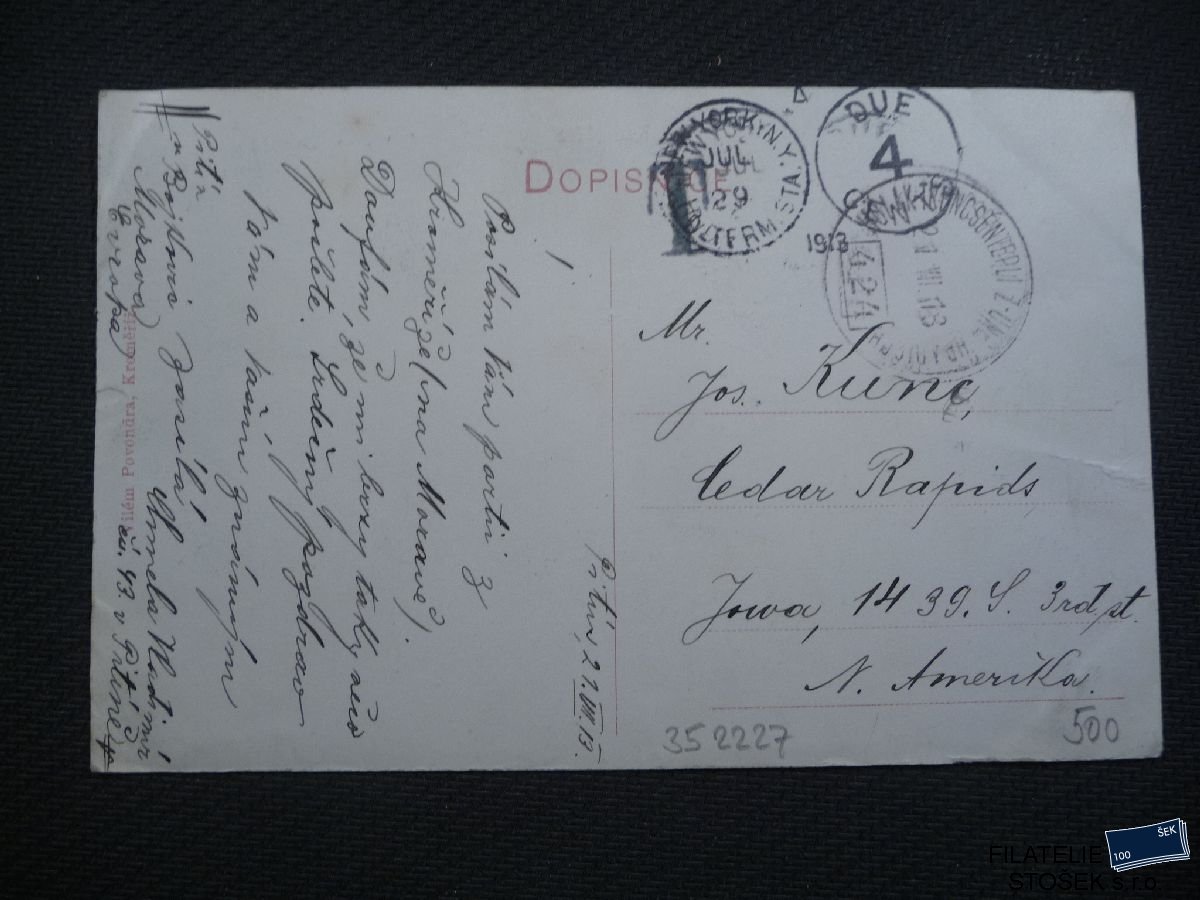 DOPISNICE
NEW YORK, N.Y.
JUL
29
HUD. TERM. STA.
1913
DUE
4
CENTS
424
T
Mr.
Jos. Kunc,
Cedar Rapids
Jowa, 1439. S. 3rd st.
N. Amerika.
Pitín, 21. VII. 13.
Posílám Vám partii z
Kroměříže (na Moravě).
Doufám, že mi brzy taky něco
pošlete. Srdečný pozdrav
Vám a Vašim známým
Vilém Povondra, Kroměříž
čís. 43 v Pitíně
Pitín
u Bojkovic
Morava
Evropa
352227
500
ŠEK
100
FILATELIE
STOŠEK s.r.o.